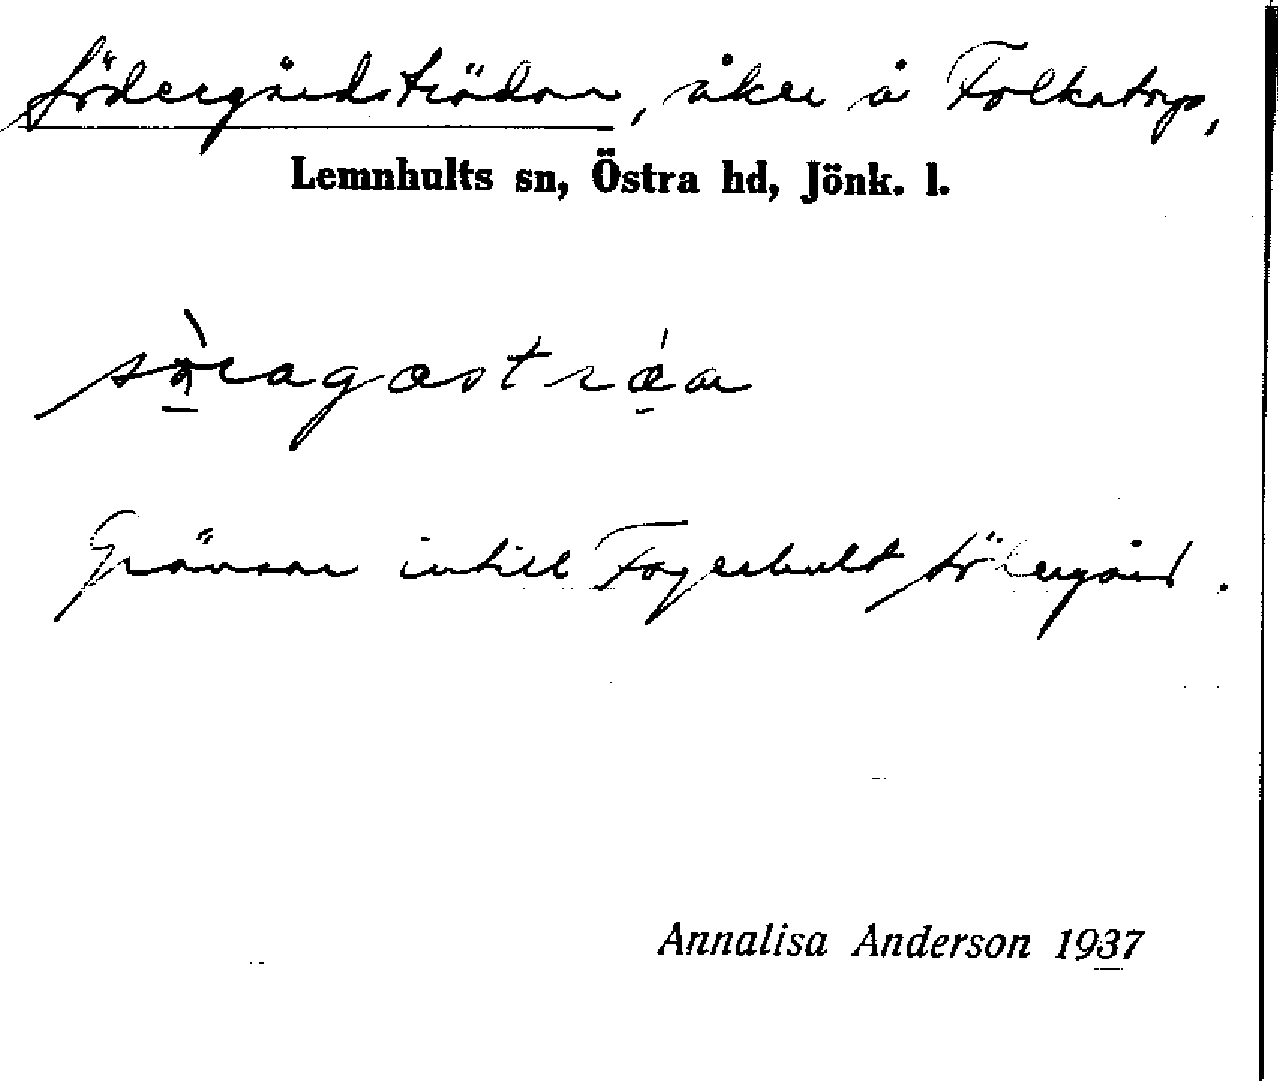 Södergårdsträdan, åker å Folkatorp,
Lemnhults sn, Östra hd, Jönk. l.
Gränsar intill Fagerhult Södergård.
Annalisa Anderson 1937